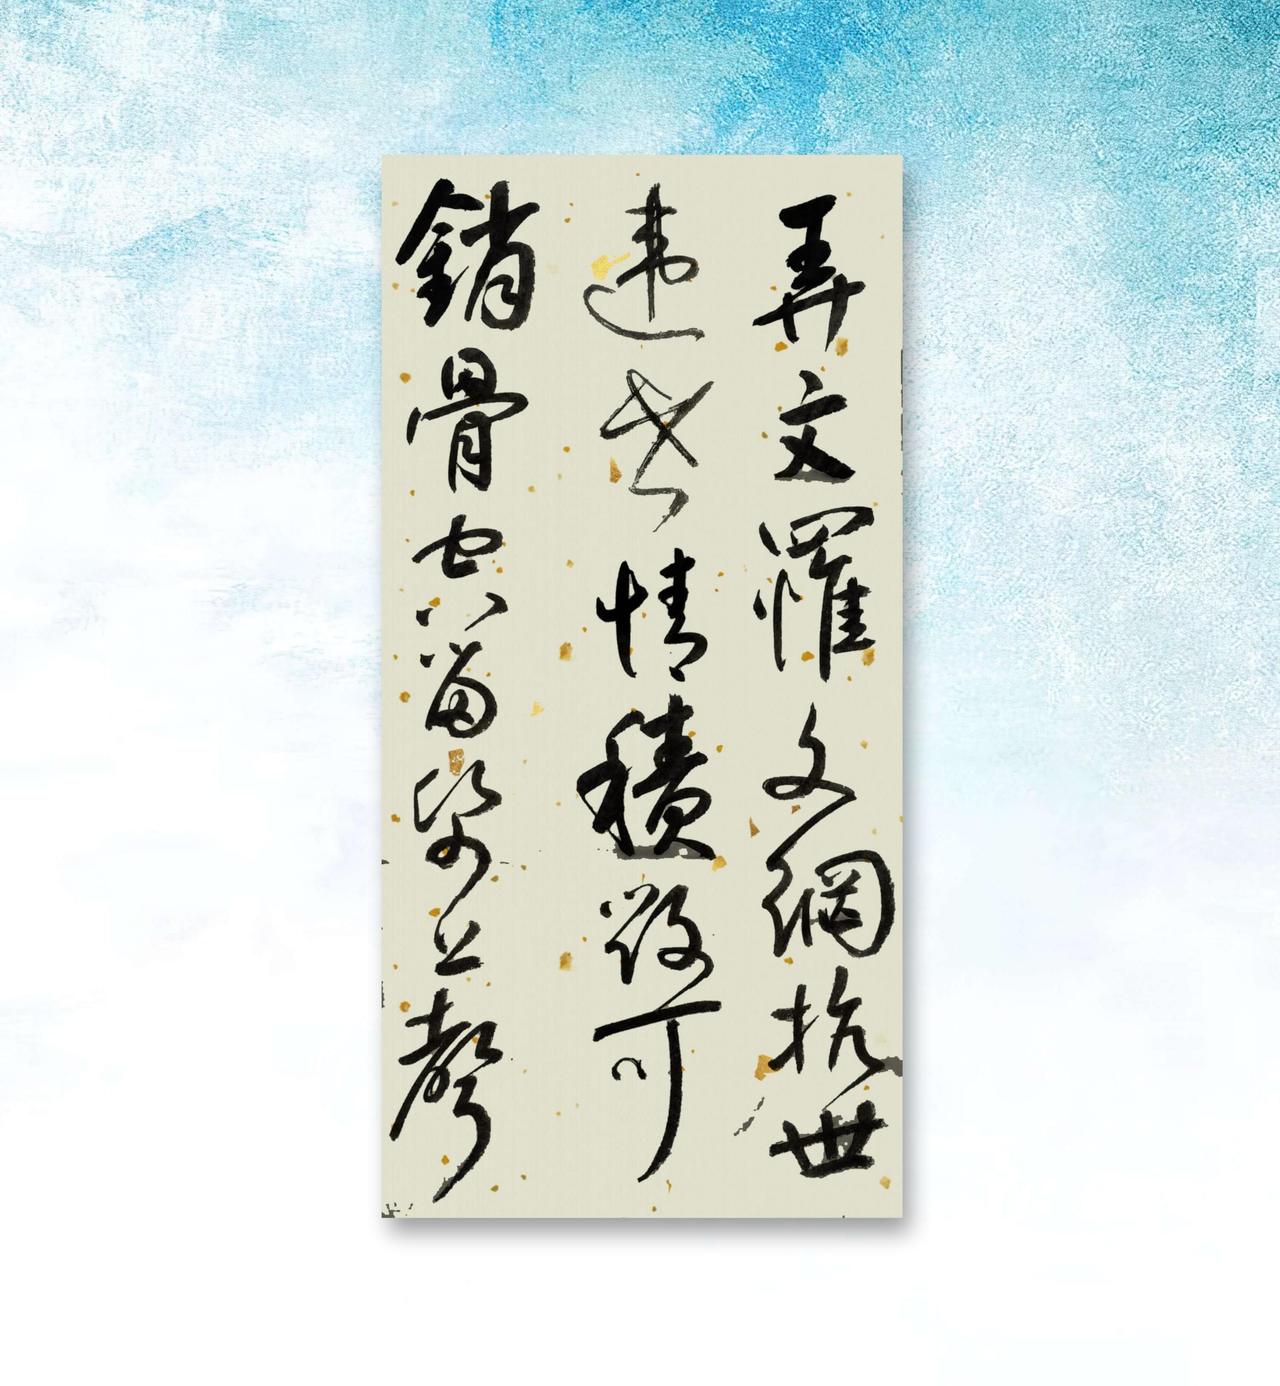 弄文罹文網抗世
違世情積毀可
銷骨空留紙上聲